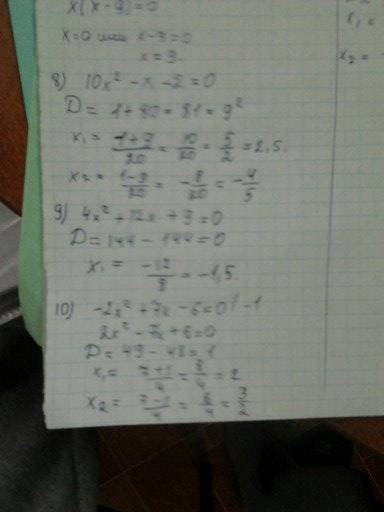 x(x-9)=0
x₁ =
x=0 или x-9=0
x=9.
x₂ =
8) 10x² - x - 2 = 0
D = 1+80 = 81 = 9²
x₁ = (1+9)/20 = 10/20 = 5/2 = 2,5.
x₂ = (1-9)/20 = -8/20 = -4/5
9) 4x² + 12x + 9 = 0
D = 144 - 144 = 0
x₁ = -12/8 = -1,5.
10) -2x² + 7x - 6 = 0 | -1
2x² - 7x + 6 = 0
D = 49 - 48 = 1
x₁ = (7+1)/4 = 8/4 = 2
x₂ = (7-1)/4 = 6/4 = 3/2